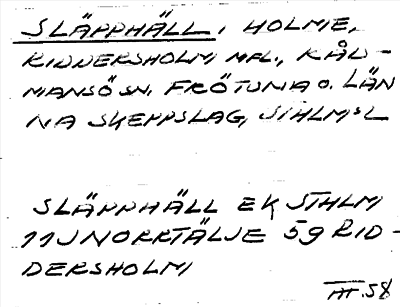 SLÄPPHÄLL, HOLME,
RIDDERSHOLM MFL., RÅD-
MANSÖ SN. FRÖTUNA O. LÄN
NA SKEPPSLAG, STHLMS L
SLÄPPHÄLL EK STHLM
11J NORRTÄLJE 59 RID-
DERSHOLM
HT.58